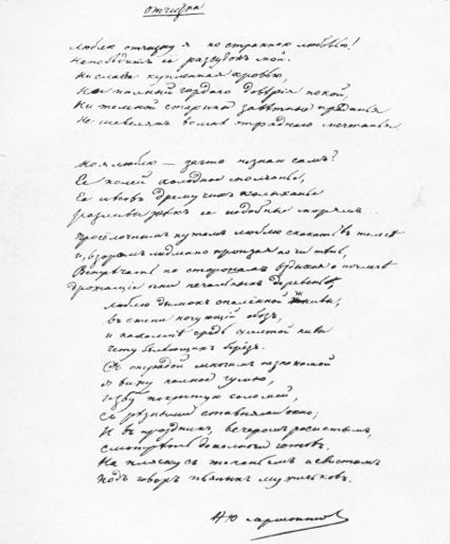 Отчизна
Люблю отчизну я но странною любовью!
Непобедитъ ее разсудокъ мой.
Ни слава купленная кровью,
Ни полный гордаго доверія покой,
Ни темной старины заветныя преданья
Не шевелятъ во мне отраднаго мечтанья
Но я люблю — за что незнаю самъ?
Ея полей холодное молчанье,
Ея лесовъ дремучихъ колыханье
разливы рекъ ея подобные морямъ
Просёлочнымъ путемъ люблю скакать въ телеге
и, взоромъ медленно пронзая ночи тень,
Встречать по сторонамъ вздыхая о ночлеге
дрожащіе огни печальныхъ деревень,
люблю дымокъ спаленной жнивы,
въ степи ночующій обозъ,
и на холме средь желтой нивы
чету белеющихъ берёзъ.
Съ отрадой многимъ незнакомой
я вижу полное гумно,
избу покрытую соломой,
съ резными ставнями окно;
И въ праздникъ, вечеромъ росистымъ,
смотреть до полночи готовъ
На пляску съ топаньемъ и свистомъ
Подъ говоръ пьяныхъ мужичковъ.